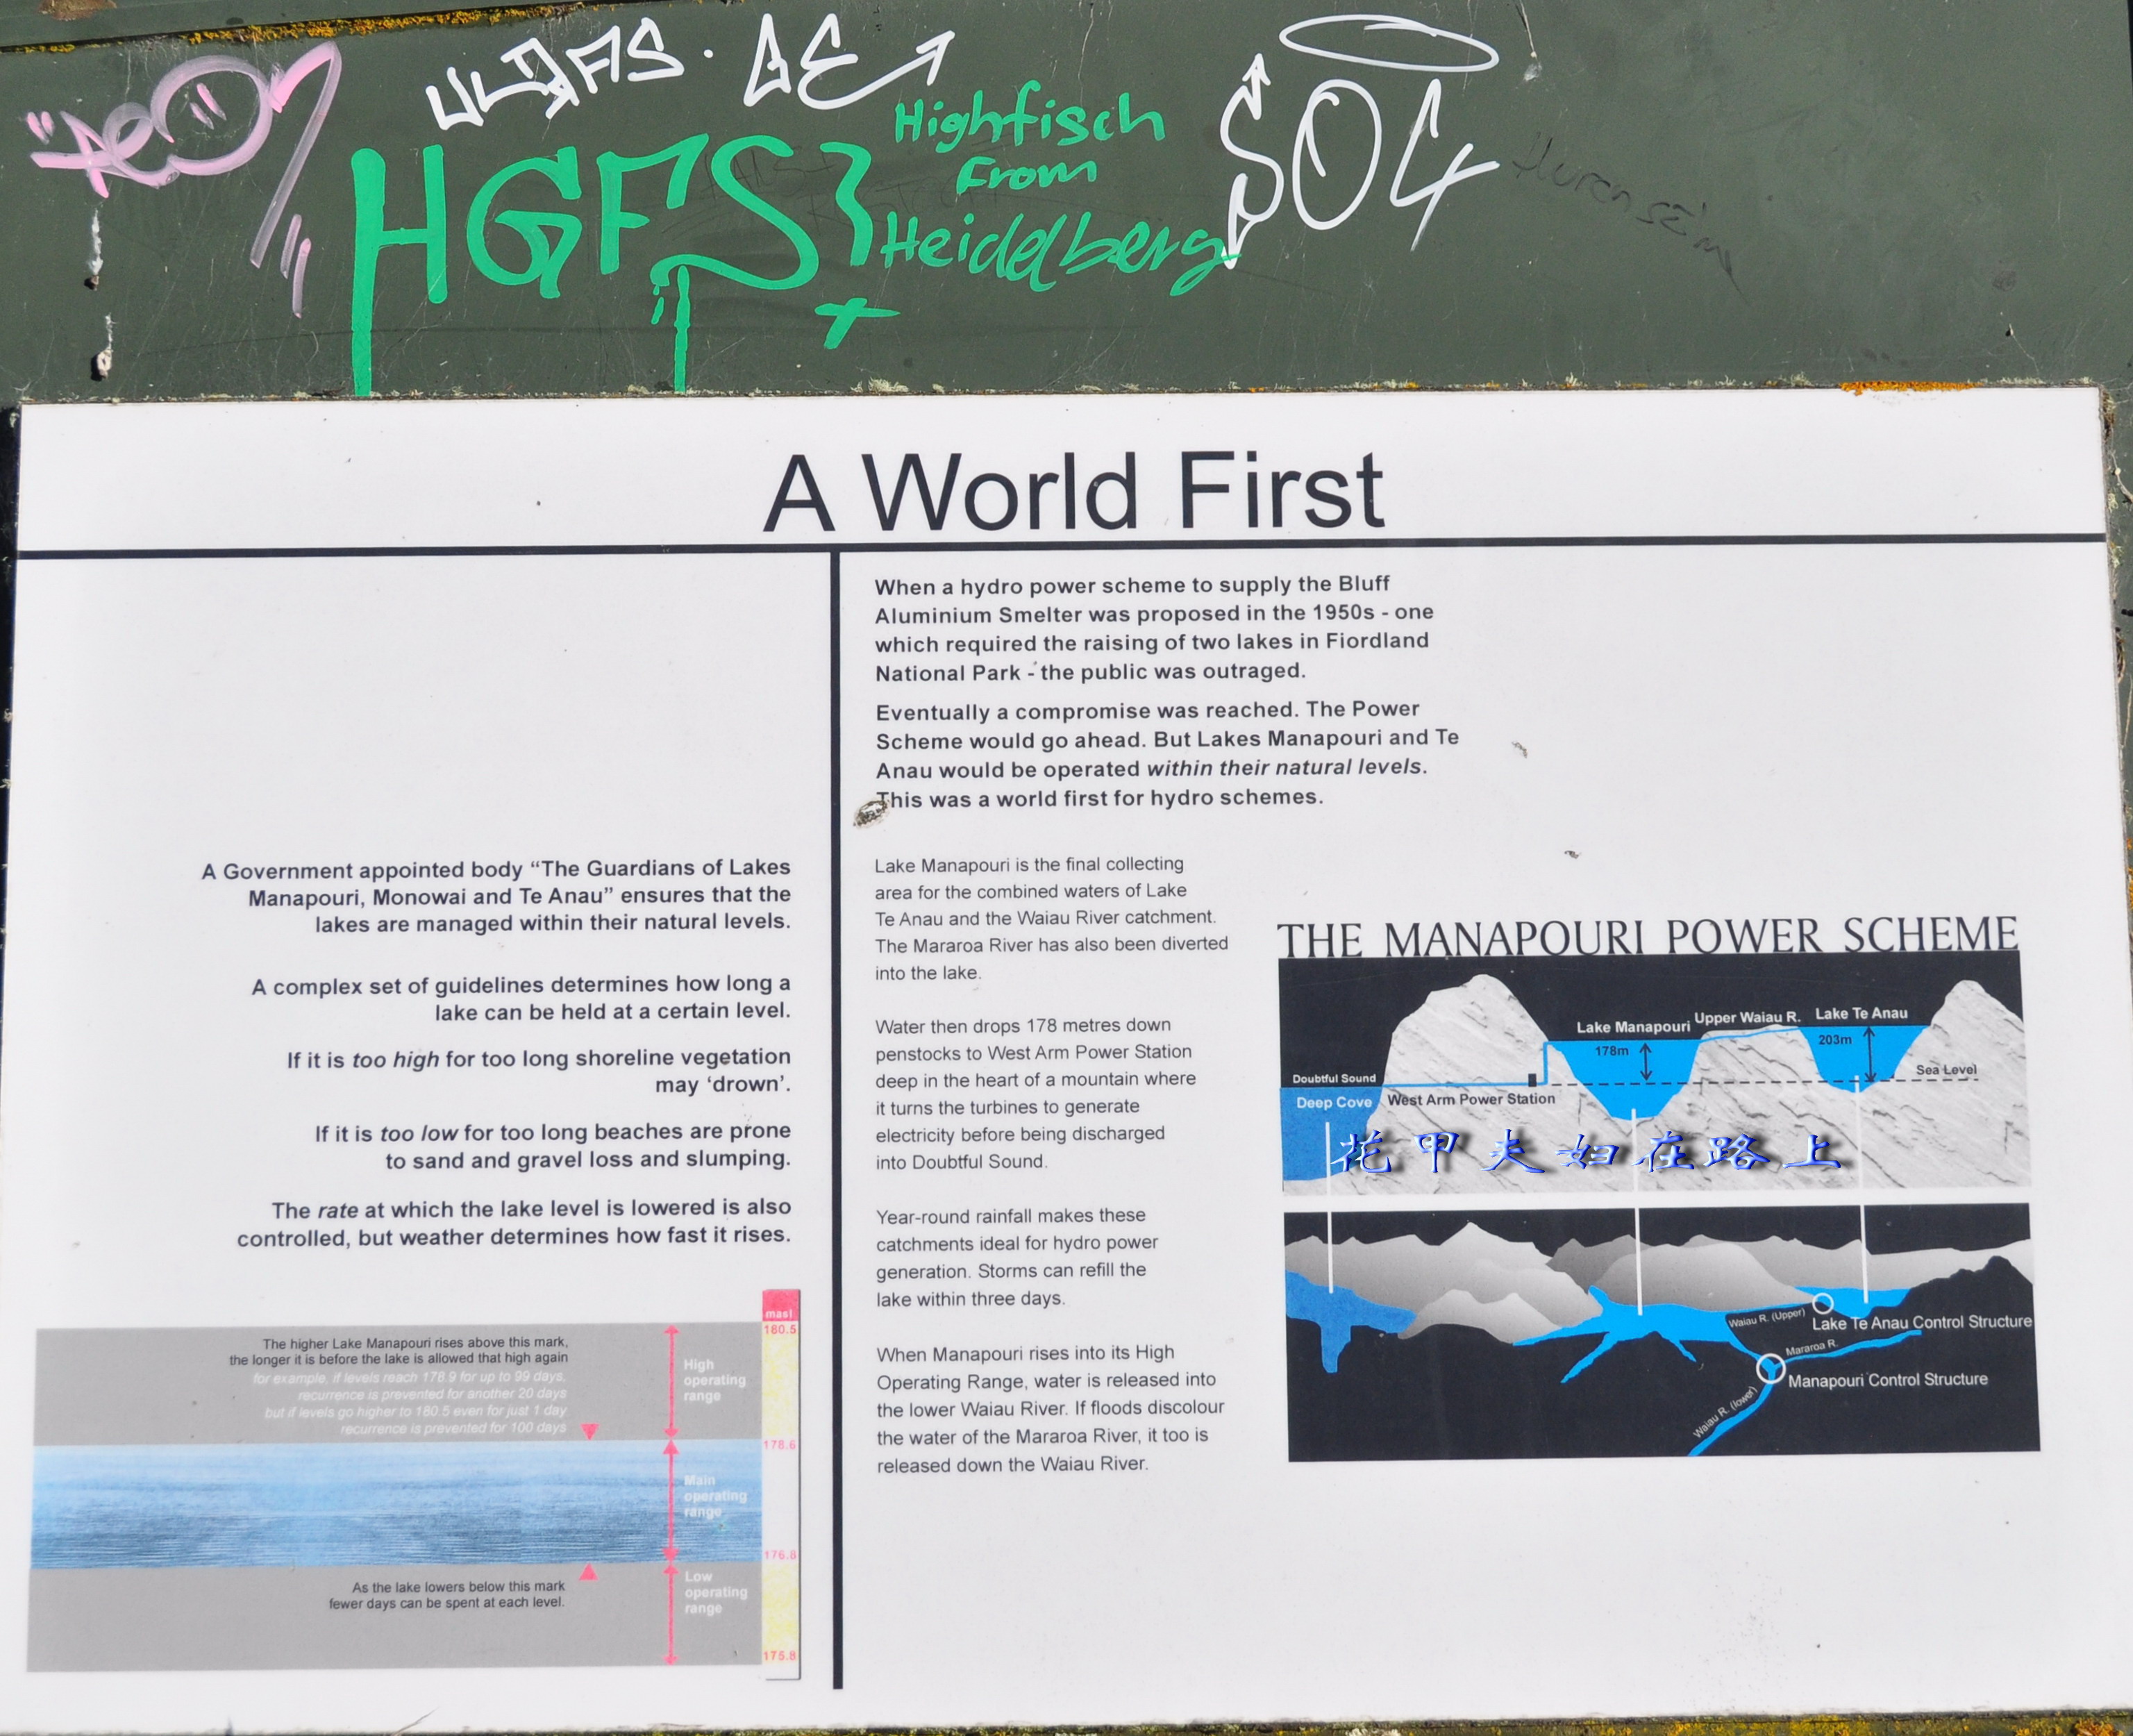 HGFS
Highfisch
From
Heidelberg
A World First
When a hydro power scheme to supply the Bluff
Aluminium Smelter was proposed in the 1950s - one
which required the raising of two lakes in Fiordland
National Park - the public was outraged.
Eventually a compromise was reached. The Power
Scheme would go ahead. But Lakes Manapouri and Te
Anau would be operated within their natural levels.
This was a world first for hydro schemes.
A Government appointed body “The Guardians of Lakes
Manapouri, Monowai and Te Anau” ensures that the
lakes are managed within their natural levels.
A complex set of guidelines determines how long a
lake can be held at a certain level.
If it is too high for too long shoreline vegetation
may ‘drown’.
If it is too low for too long beaches are prone
to sand and gravel loss and slumping.
The rate at which the lake level is lowered is also
controlled, but weather determines how fast it rises.
masl
180.5
The higher Lake Manapouri rises above this mark,
the longer it is before the lake is allowed that high again
for example, if levels reach 178.9 for up to 99 days,
recurrence is prevented for another 20 days
but if levels go higher to 180.5 even for just 1 day
recurrence is prevented for 100 days
High
operating
range
178.6
Main
operating
range
176.8
As the lake lowers below this mark
fewer days can be spent at each level.
Low
operating
range
175.8
Lake Manapouri is the final collecting
area for the combined waters of Lake
Te Anau and the Waiau River catchment.
The Mararoa River has also been diverted
into the lake.
Water then drops 178 metres down
penstocks to West Arm Power Station
deep in the heart of a mountain where
it turns the turbines to generate
electricity before being discharged
into Doubtful Sound.
Year-round rainfall makes these
catchments ideal for hydro power
generation. Storms can refill the
lake within three days.
When Manapouri rises into its High
Operating Range, water is released into
the lower Waiau River. If floods discolour
the water of the Mararoa River, it too is
released down the Waiau River.
THE MANAPOURI POWER SCHEME
Lake Manapouri
Upper Waiau R.
Lake Te Anau
178m
203m
Sea Level
Doubtful Sound
Deep Cove
West Arm Power Station
花甲夫妇在路上
Waiau R. (Upper)
Lake Te Anau Control Structure
Mararoa R.
Manapouri Control Structure
Waiau R. (lower)